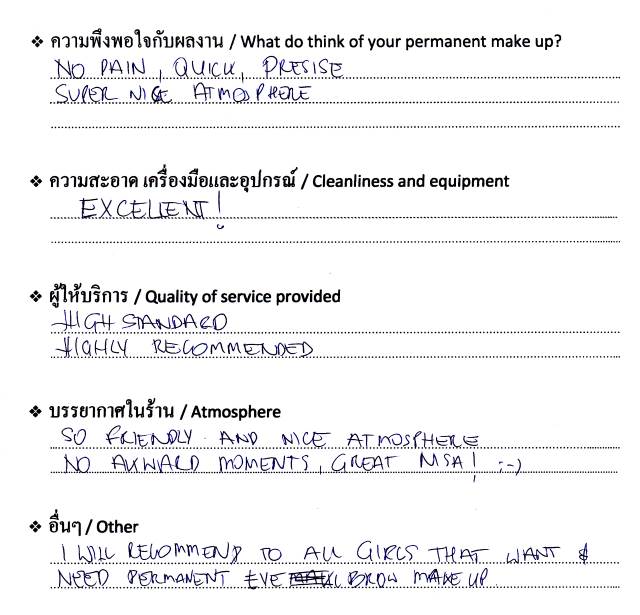 ❖ ความพึงพอใจกับผลงาน / What do think of your permanent make up?
NO PAIN, QUICK, PRESISE
SUPER NICE ATMOSPHERE
❖ ความสะอาด เครื่องมือและอุปกรณ์ / Cleanliness and equipment
EXCELLENT!
❖ ผู้ให้บริการ / Quality of service provided
HIGH STANDARD
HIGHLY RECOMMENDED
❖ บรรยากาศในร้าน / Atmosphere
SO FRIENDLY AND NICE ATMOSPHERE
NO AKWARD MOMENTS, GREAT MSA! ;-)
❖ อื่นๆ / Other
I WILL RECOMMEND TO ALL GIRLS THAT WANT &
NEED PERMANENT EYE BROW MAKE UP